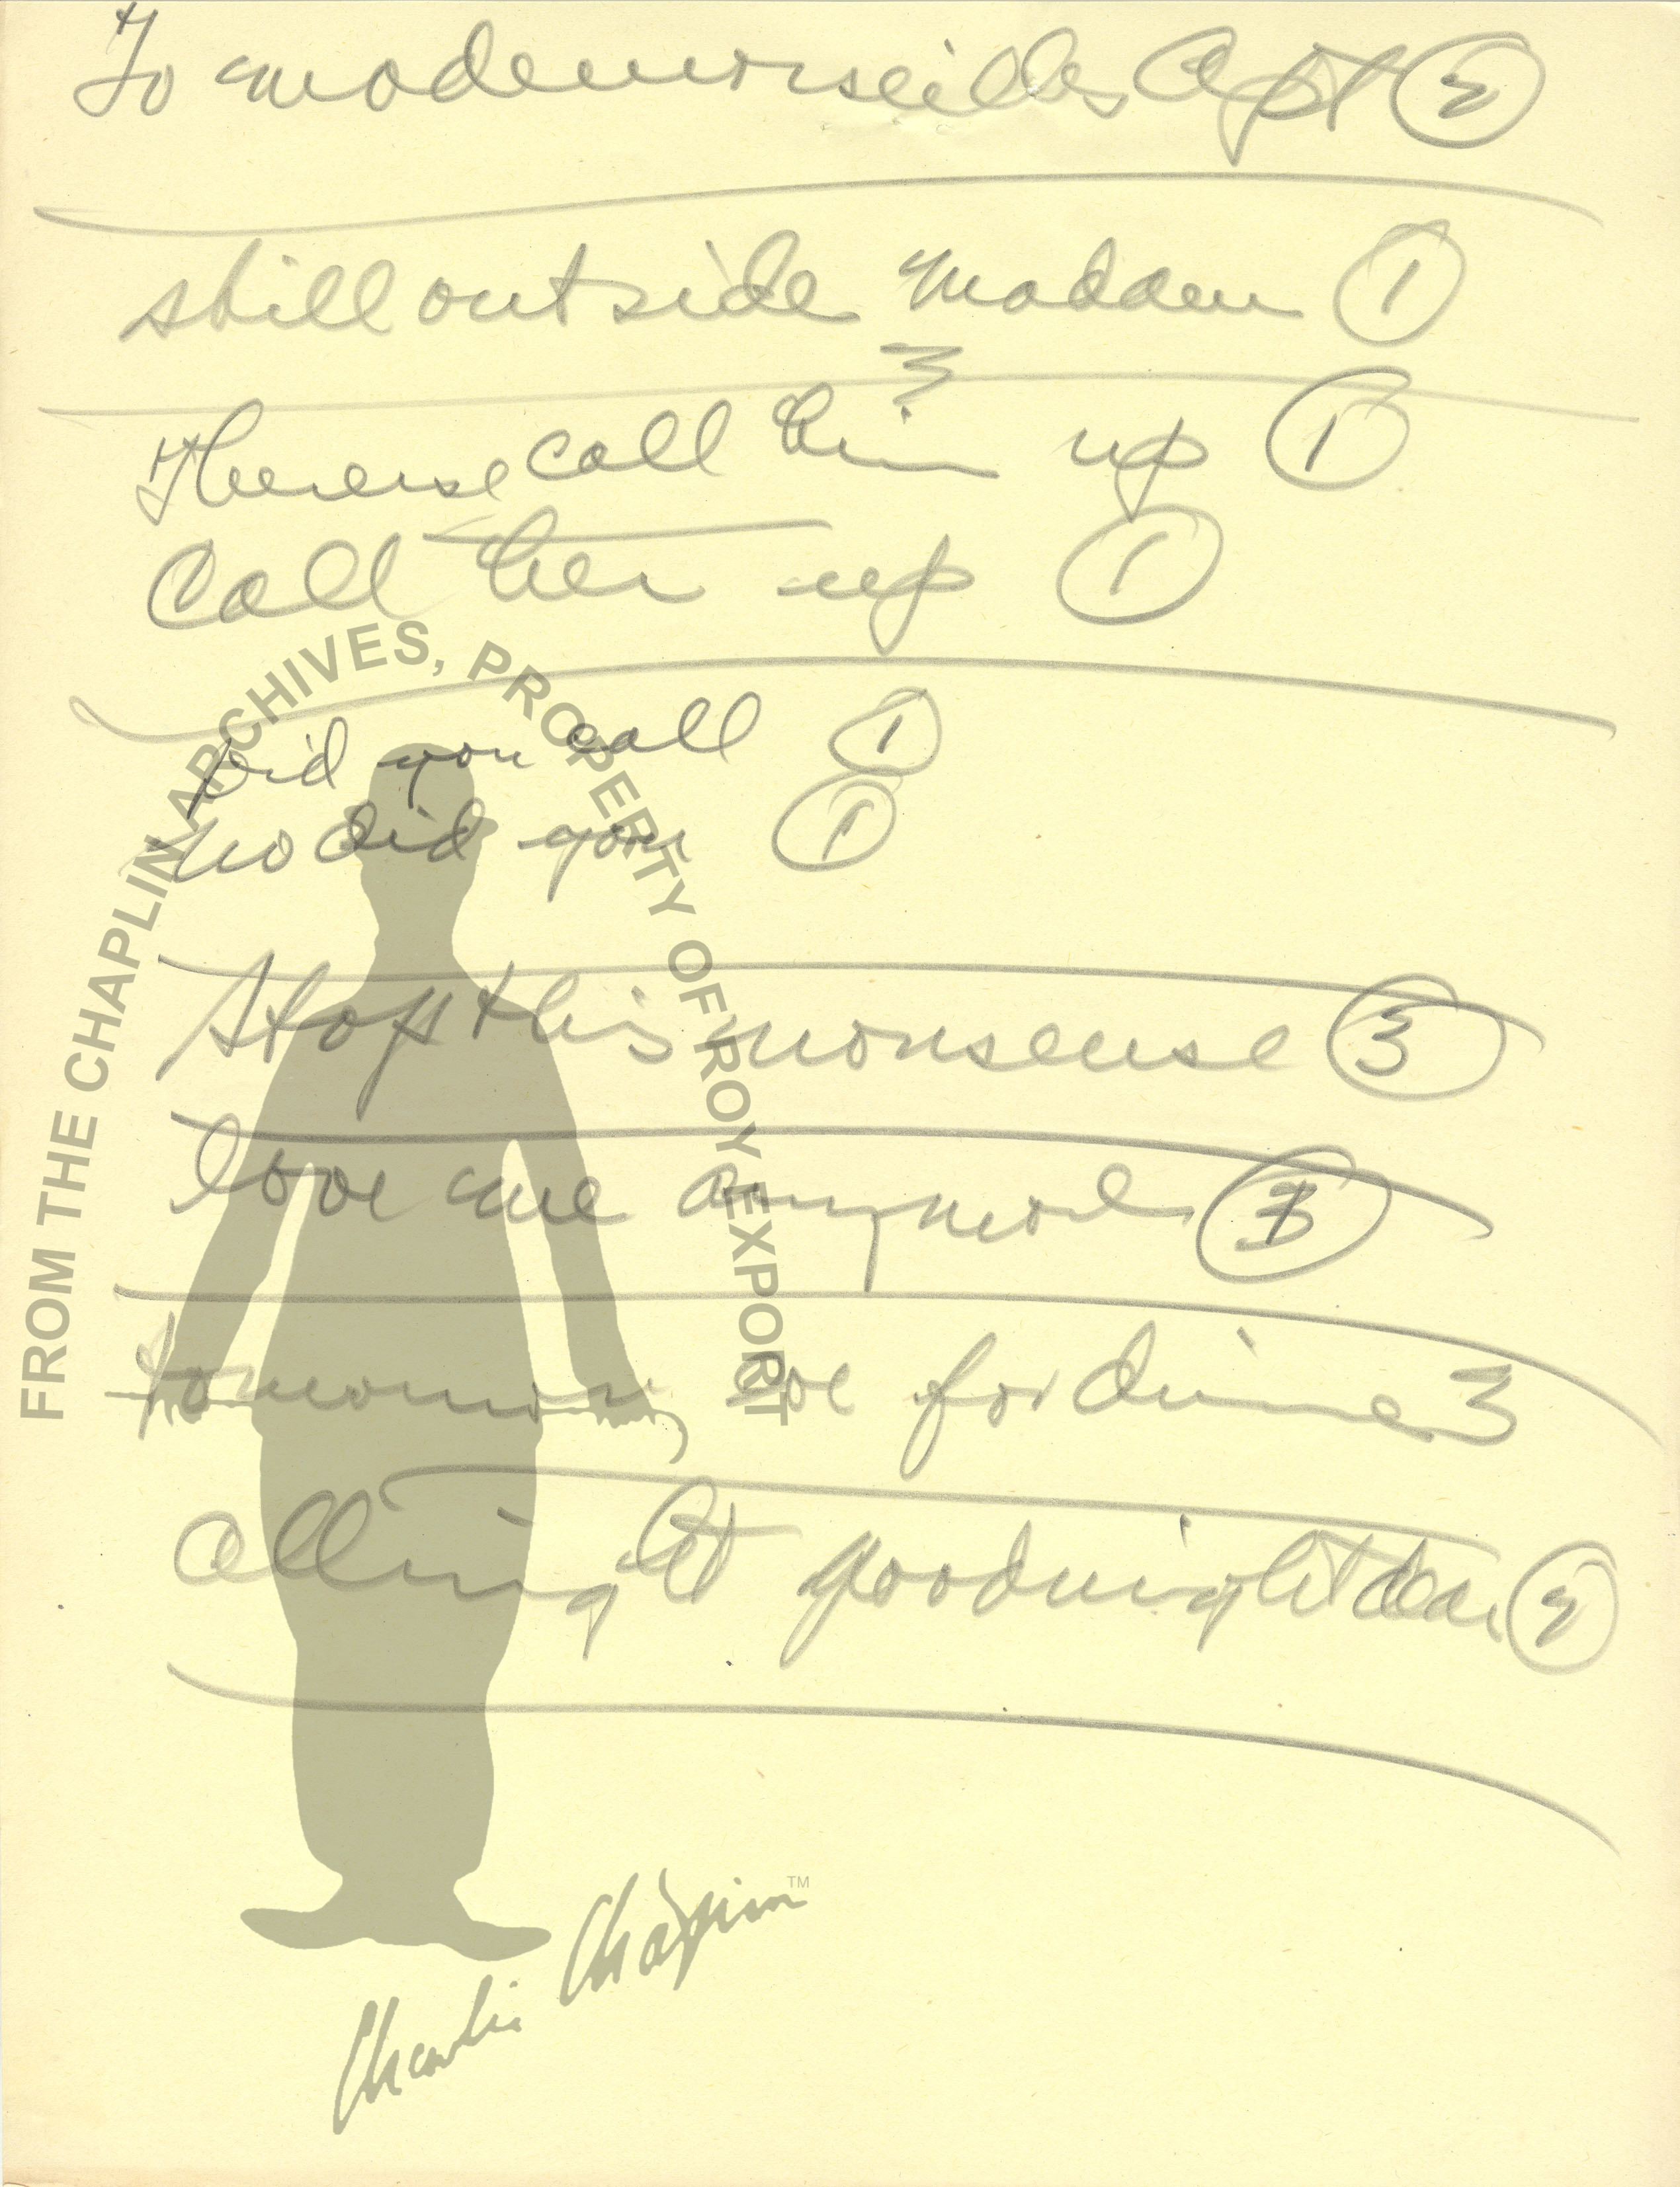 To mademoiselles Apt 2
still outside madam 1
3
Therese call him up 1
Call her up 1
Did you call 1
no did you 1
Stop this nonsense 3
love me anymore 3
tomorrow, we for dinner 3
allright goodnight dear 2
FROM THE CHAPLIN ARCHIVES, PROPERTY OF ROY EXPORT
Charlie Chaplin™